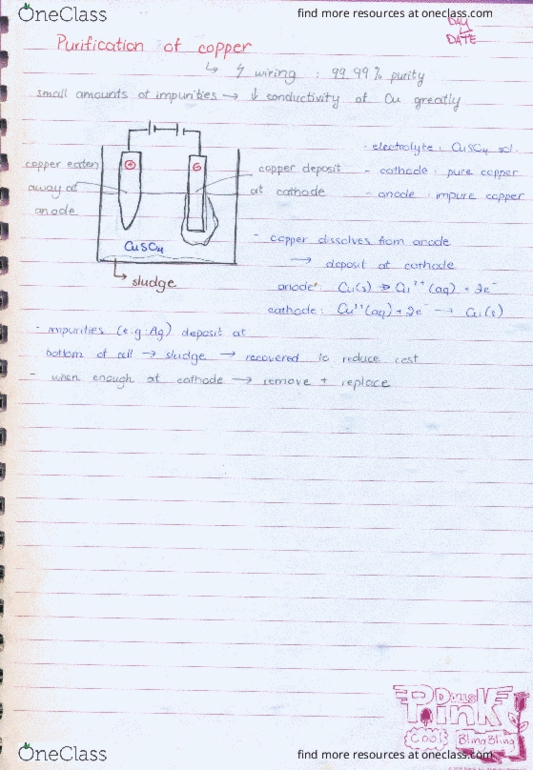 OneClass
find more resources at oneclass.com
DAY
DATE
Purification of copper
↳ ϟ wiring : 99.99 % purity
small amounts of impurities → ↓ conductivity of Cu greatly
copper eaten
away at
anode
+
copper deposit
at cathode
CuSO4
↳ sludge
- electrolyte : CuSO4 sol.
- cathode : pure copper
- anode : impure copper
- copper dissolves from anode
→ deposit at cathode
anode : Cu(s) → Cu²⁺(aq) + 2e⁻
cathode : Cu²⁺(aq) + 2e⁻ → Cu(s)
- impurities (e.g. Ag) deposit at
bottom of cell → sludge → recovered to reduce cost
- when enough at cathode → remove + replace
Pink
Cool
Bling Bling
OneClass
find more resources at oneclass.com